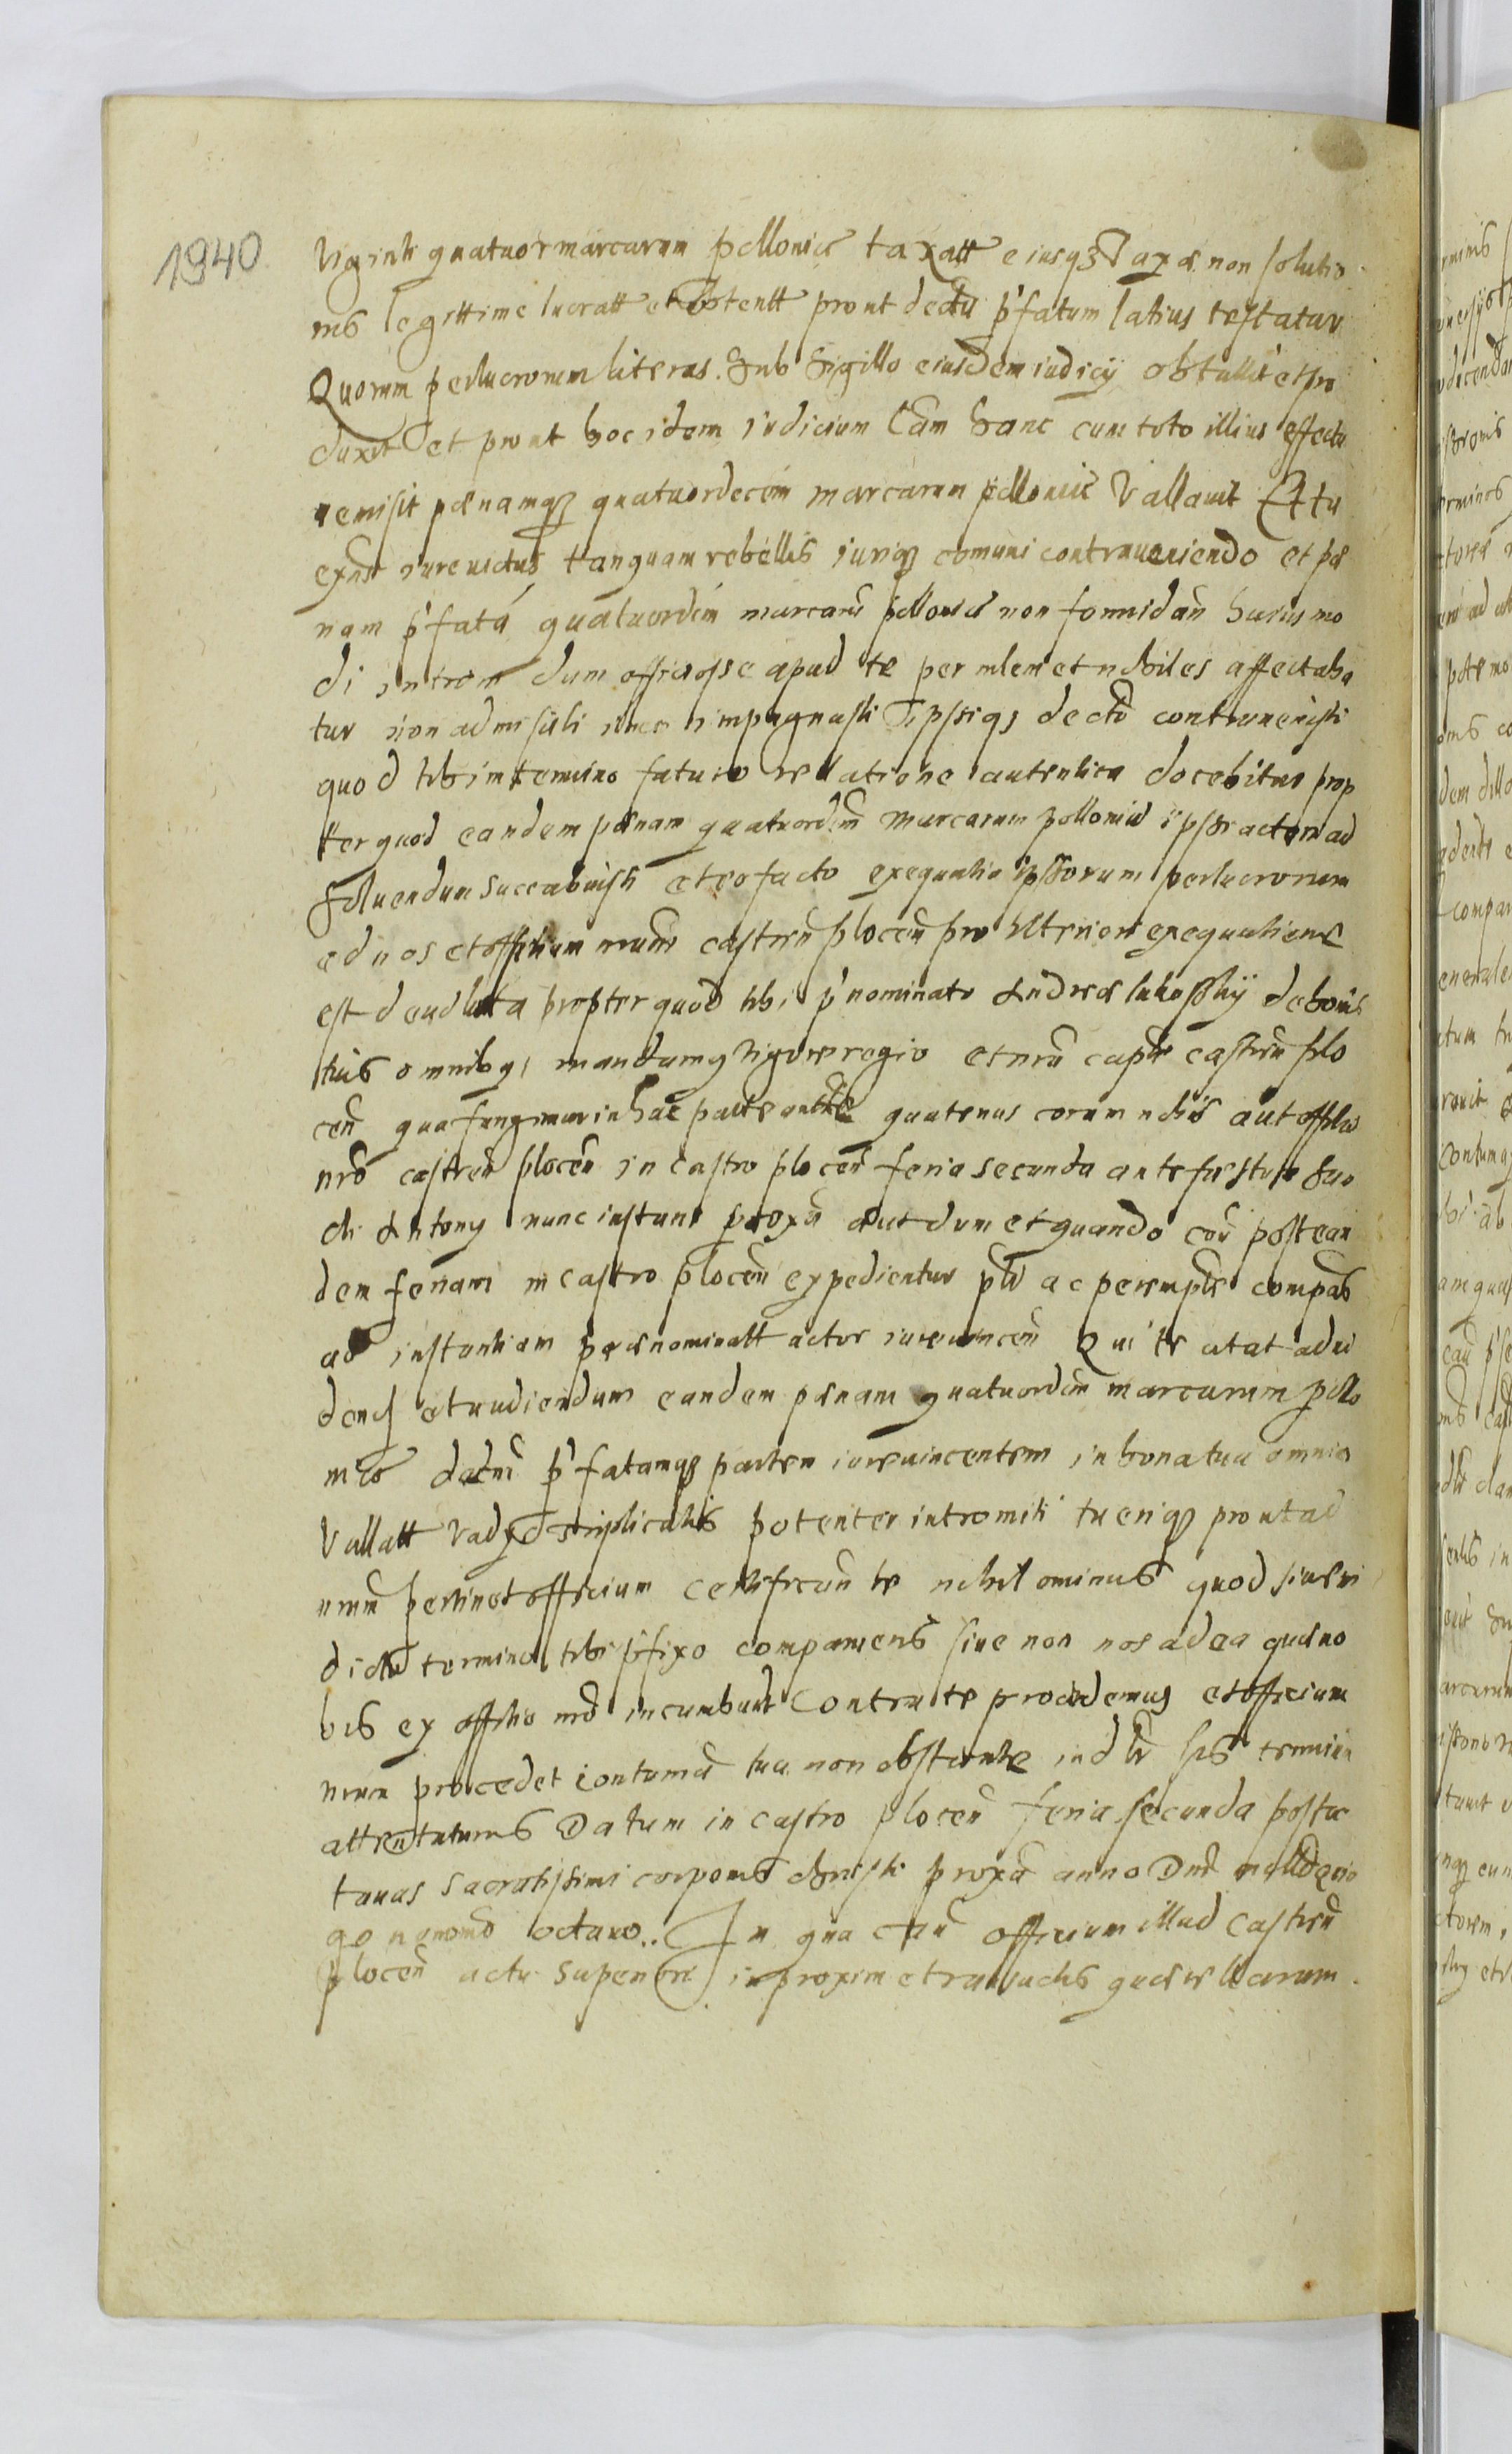 1940
Viginti quatuor marcarum pollonic taxatt eiusqz Taxae non solutio
nis legittime lucratt et obtentt prout dectu p'fatum latius testatur
Quorum perlucrorum literas. Sub Sigillo eiusdem iudicÿ obtullit et pro
duxit et prout hoc idem iudicium Cam hanc cum toto illius effectu
remisit paenamqz quatuordecim marcarum pollonic Vallavit Et tu
iure victus tanquam rebellis iuriqz comuni contraveniendo et pae
nam p'fatá quatuordim marcarũ pollonic non formidañ huius mo
di introm dum officiosse apud te per mlem et nobiles affectaba
tur non admisisti imo impugnasti ipsiqz decto contravenisti
quod tibi in termino futuro rellatione autentica docebitur prop
ter quod eandem paenam quatuordim marcarum pollonic ipssi actori ad
Soluendum succubuisti et eo facto exequutio ipssorum perlucrorum
ad nos et officium nrum castreñ ploceñ pro ulteriori exequutione
est devoluta propter quod tibi p'nominato Andreae lukosskÿ de bonis
tuis omnibqz mandamqz rigore regio et nrũ captr castreñ plo
ceñ qua fungimur in hac parte autte quatenus coram nobis aut offitio
nrõ castreñ ploceñ in castro ploceñ feria secunda ante festum San
cti Antony nunc instant proxa aut dum et quando coñ post ean
dem feriam in castro ploceñ expedientur ptr ac peremptr compas
ad instantiam praenominatt actor iurevinceñ Qui te citat ad vi
dend et audiendum eandem paenam quatuordim marcarum pollo
nic p'fatamqz partem iurevincentem in bona tua omnia
Vallatt Vadÿs triplicatis potenter intromitti tueriqz prout ad
nrum pertinet officium certificañ te nihilominus quod sive in
dicto termino tibi p'fixo comparueris sive non nos ad ea quae no
bis ex offitio nrõ incumbunt Contra te procedemus et officium
nrum procedet contuma tua non obstante indtr sis termin
attentaturus Datum in castro ploceñ feria secunda post oc
tavas sacratissimi corporis christi proxa anno Dni millesimo
qo nonomo octavo.. In qua Caũ officium illud Castreñ
ploceñ actu Superiori in proxim et transactis quaerellarum.